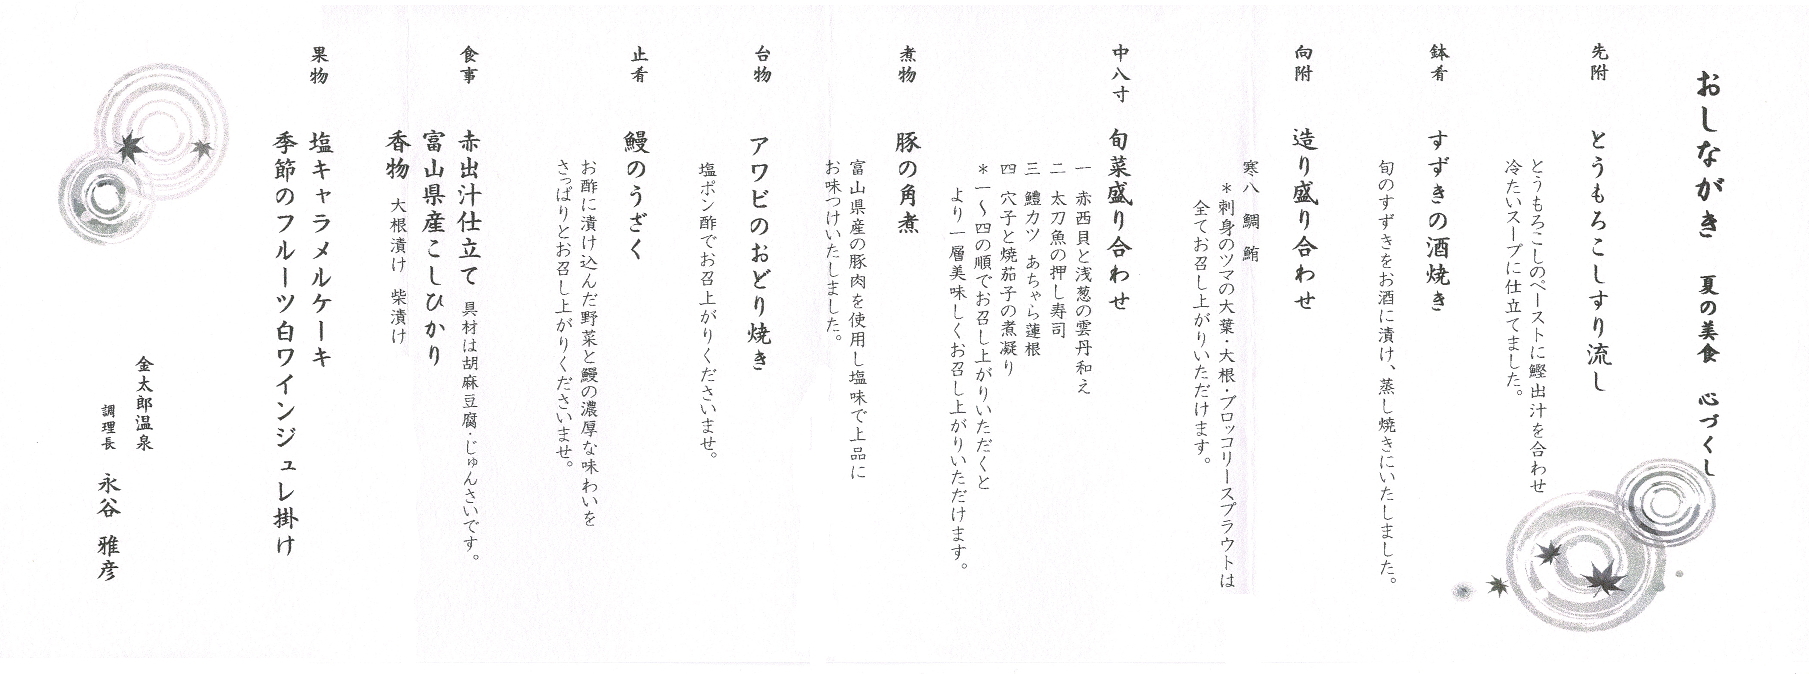 おしながき　夏の美食　心づくし
先附　とうもろこしすり流し
とうもろこしのペーストに鰹出汁を合わせ
冷たいスープに仕立てました。
鉢肴　すずきの酒焼き
旬のすずきをお酒に漬け、蒸し焼きにいたしました。
向附　造り盛り合わせ
寒八　鯛　鮪
＊刺身のツマの大葉・大根・ブロッコリースプラウトは
全てお召し上がりいただけます。
中八寸　旬菜盛り合わせ
一　赤西貝と浅葱の雲丹和え
二　太刀魚の押し寿司
三　鱧カツ　あちゃら蓮根
四　穴子と焼茄子の煮凝り
＊一～四の順でお召し上がりいただくと
より一層美味しくお召し上がりいただけます。
煮物　豚の角煮
富山県産の豚肉を使用し塩味で上品に
お味つけいたしました。
台物　アワビのおどり焼き
塩ポン酢でお召上がりくださいませ。
止肴　鰻のうざく
お酢に漬け込んだ野菜と鰻の濃厚な味わいを
さっぱりとお召し上がりくださいませ。
食事　赤出汁仕立て　具材は胡麻豆腐・じゅんさいです。
富山県産こしひかり
香物　大根漬け　柴漬け
果物　塩キャラメルケーキ
季節のフルーツ白ワインジュレ掛け
金太郎温泉
調理長　永谷　雅彦